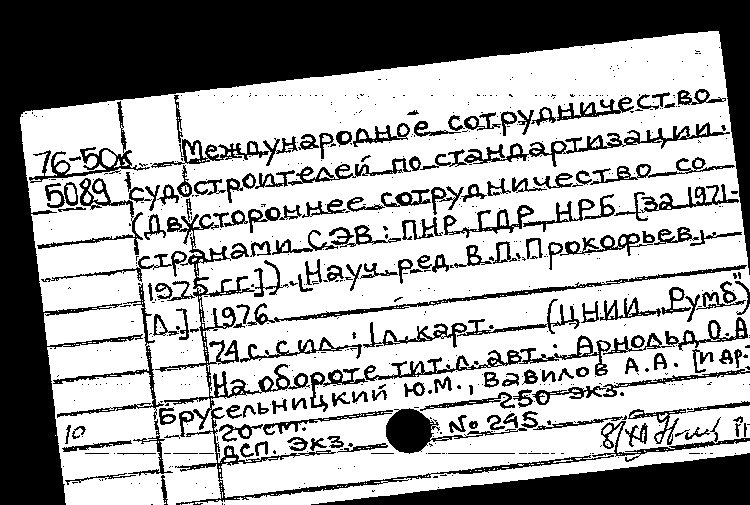 76-50к Международное сотрудничество
5089 судостроителей по стандартизации.
(Двустороннее сотрудничество со
странами СЭВ: ПНР, ГДР, НРБ [за 1971-
1975 гг.]). [Науч. ред. В.П.Прокофьев].
[Л.] 1976.
74 с. с ил.; 1 л. карт. (ЦНИИ „Румб")
На обороте тит.л. авт.: Арнольд О.А
Брусельницкий Ю.М., Вавилов А.А. [и др.
20 см. 250 экз.
10 ДСП. Экз. № 245.